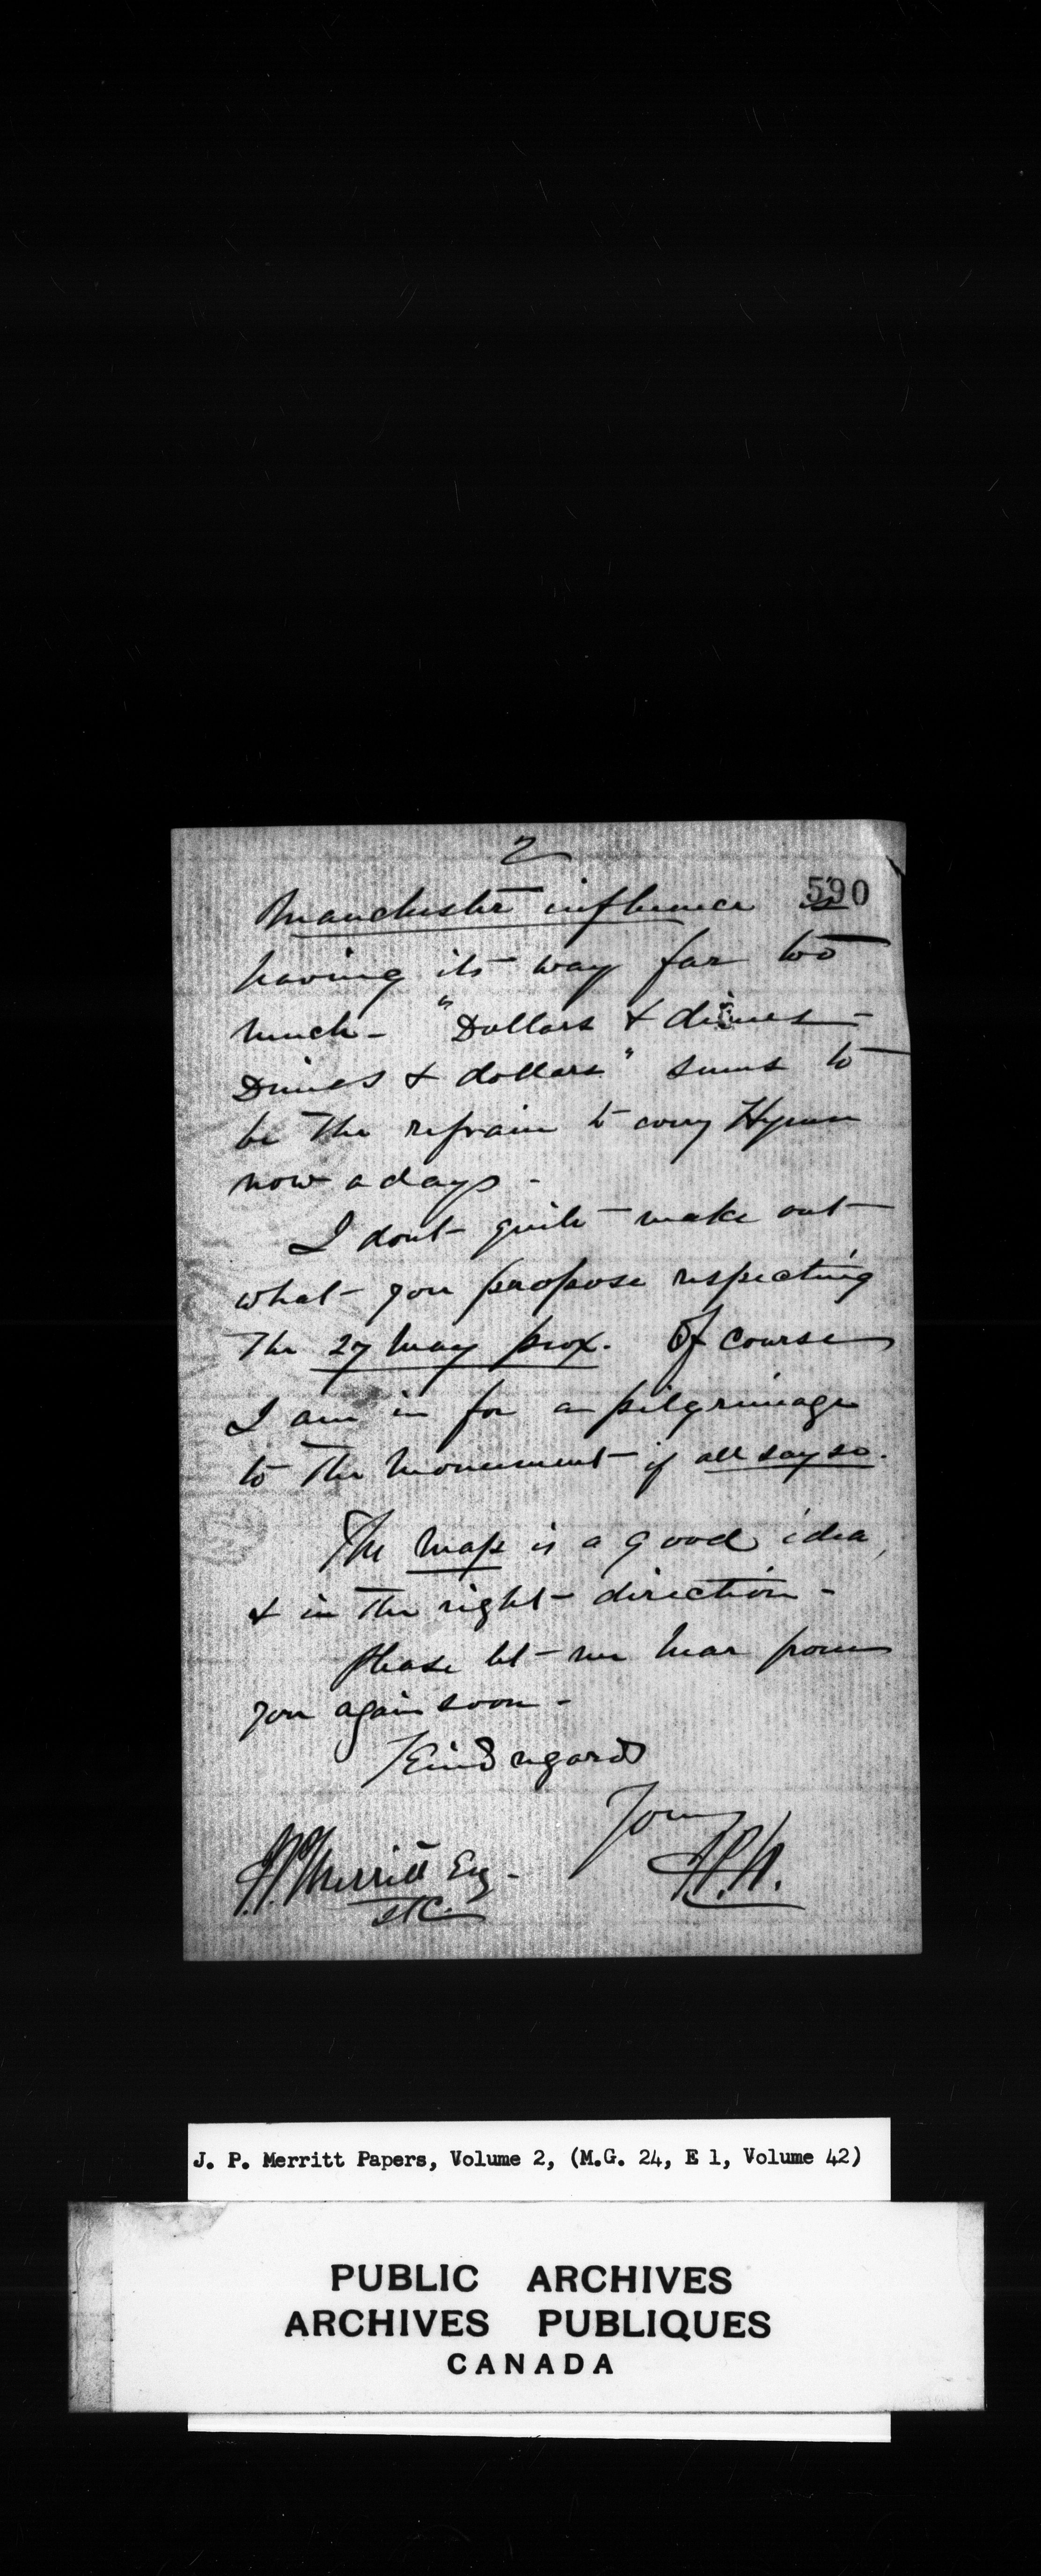 2
590
Manchester influence is
having its way far too
much - "Dollars & dimes -
Dimes & dollars" seems to
be the refrain to every Hymn
now a days -
I dont quite make out
what you propose respecting
the 27 May prox. Of course
I am in for a pilgrimage
to the Monument if all say so.
The Map is a good idea,
& in the right direction -
Please let me hear from
you again soon -
Kind regards
Yours
J.P. Merritt Esq -
StC.
J. P. Merritt Papers, Volume 2, (M.G. 24, E 1, Volume 42)
PUBLIC ARCHIVES
ARCHIVES PUBLIQUES
CANADA